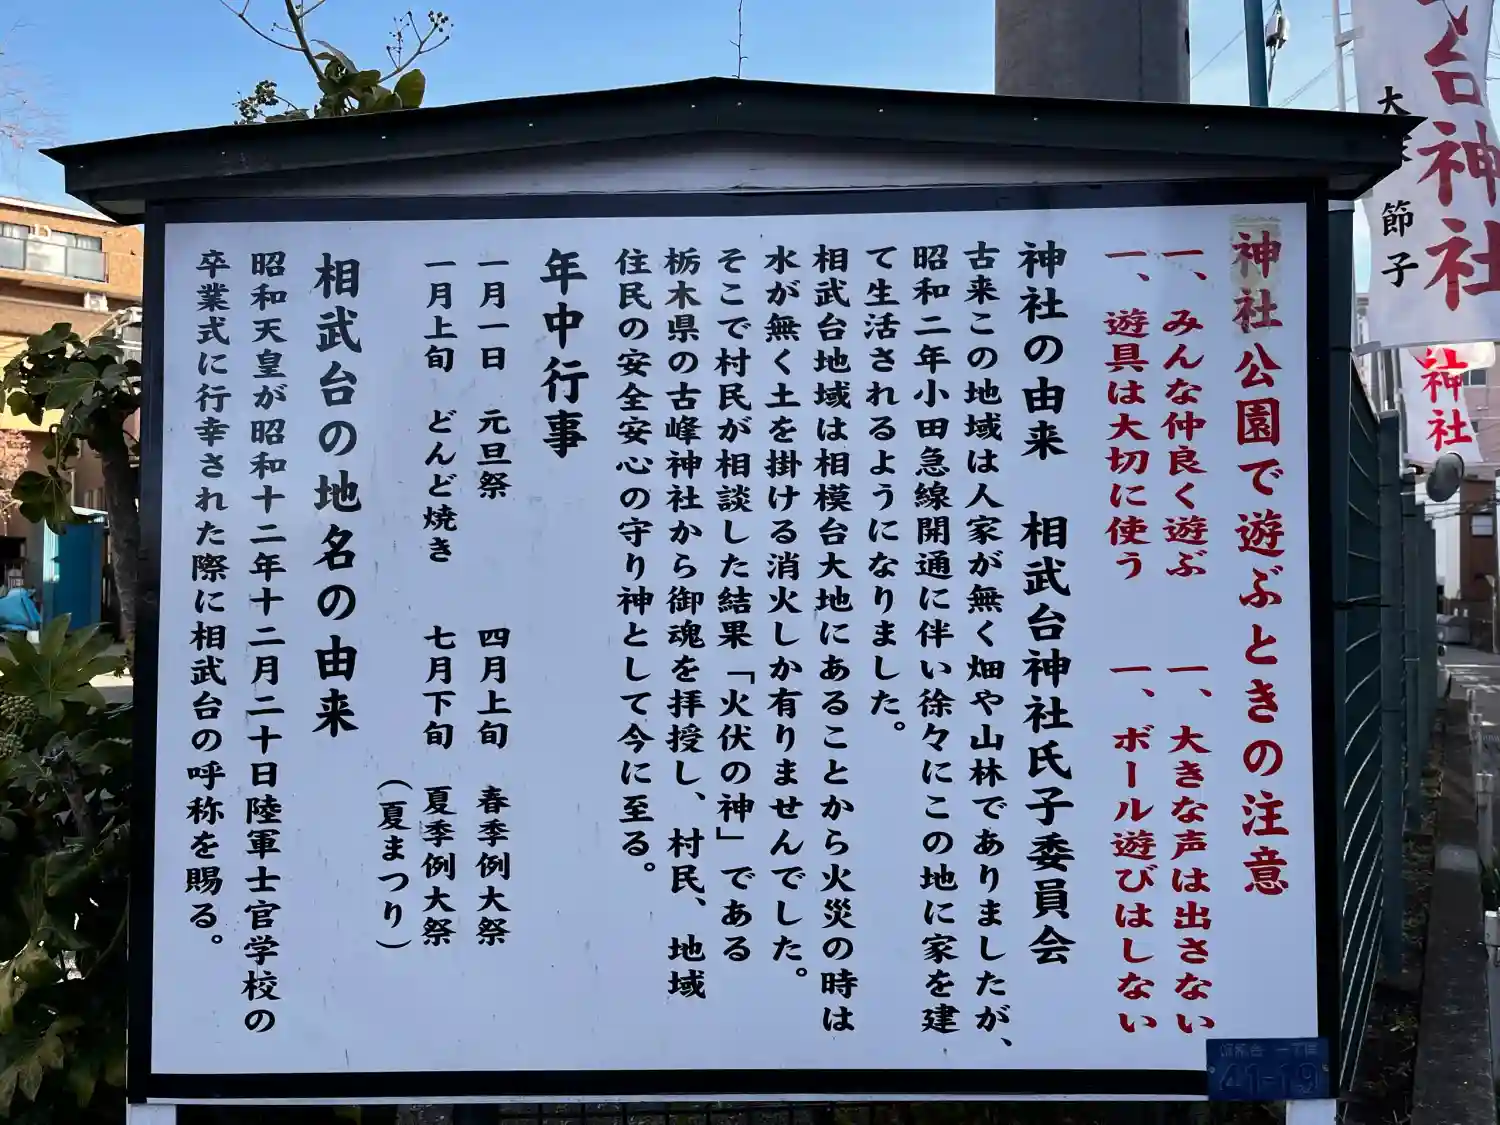 神社公園で遊ぶときの注意
一、みんな仲良く遊ぶ　一、大きな声は出さない
一、遊具は大切に使う　一、ボール遊びはしない
神社の由来　相武台神社氏子委員会
古来この地域は人家が無く畑や山林でありましたが、
昭和二年小田急線開通に伴い徐々にこの地に家を建
て生活されるようになりました。
相武台地域は相模台大地にあることから火災の時は
水が無く土を掛ける消火しか有りませんでした。
そこで村民が相談した結果「火伏の神」である
栃木県の古峰神社から御魂を拝授し、村民、地域
住民の安全安心の守り神として今に至る。
年中行事
一月一日　元旦祭　四月上旬　春季例大祭
一月上旬　どんど焼き　七月下旬　夏季例大祭
（夏まつり）
相武台の地名の由来
昭和天皇が昭和十二年十二月二十日陸軍士官学校の
卒業式に行幸された際に相武台の呼称を賜る。
台神社
節子
神社
41-19